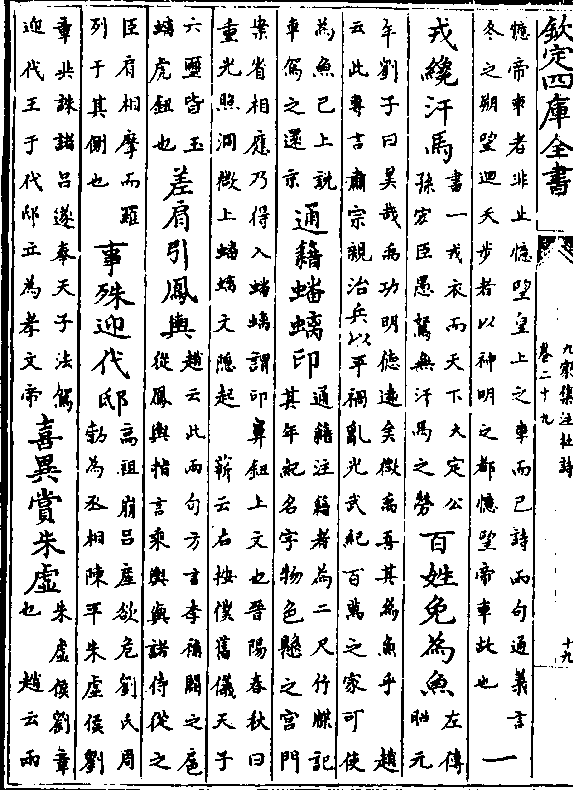 欽定四庫全書
九家集注杜詩
卷二十九
十九
憶帝車者非止憶望皇上之車而已詩兩句通義言一
冬之朔望迴天步者以神明之都憶望帝車此也
戎纔汗馬
書一戎衣而天下大定公
孫宏臣愚駑無汗馬之勞
百姓免為魚
左傳
昭元
年劉子曰美哉禹功明德遠矣微禹吾其為魚乎 趙
云此専言肅宗親治兵以平禍亂光武紀百萬之家可使
為魚已上説
車駕之還京
通籍蟠螭印
通籍注籍者為二尺竹牒記
其年紀名字物色懸之宫門
案省相應乃得入蟠螭謂印鼻鈕上文也晉陽春秋曰
重光照洞徹上蟠螭文隠起 蘄云右按漢舊儀天子
六璽皆玉
螭虎鈕也
差肩引鳳輿
趙云此兩句方言孝禰關之扈
從鳳輿指言乘輿輿諸侍從之
臣肩相摩而羅
列于其側也
事殊迎代邸
高祖崩吕産欲危劉氏周
勃為丞相陳平朱虚侯劉
章共誅諸吕遂奉天子法駕
迎代王于代邸立為孝文帝
喜異賞朱虚
朱虚侯劉章
也 趙云兩